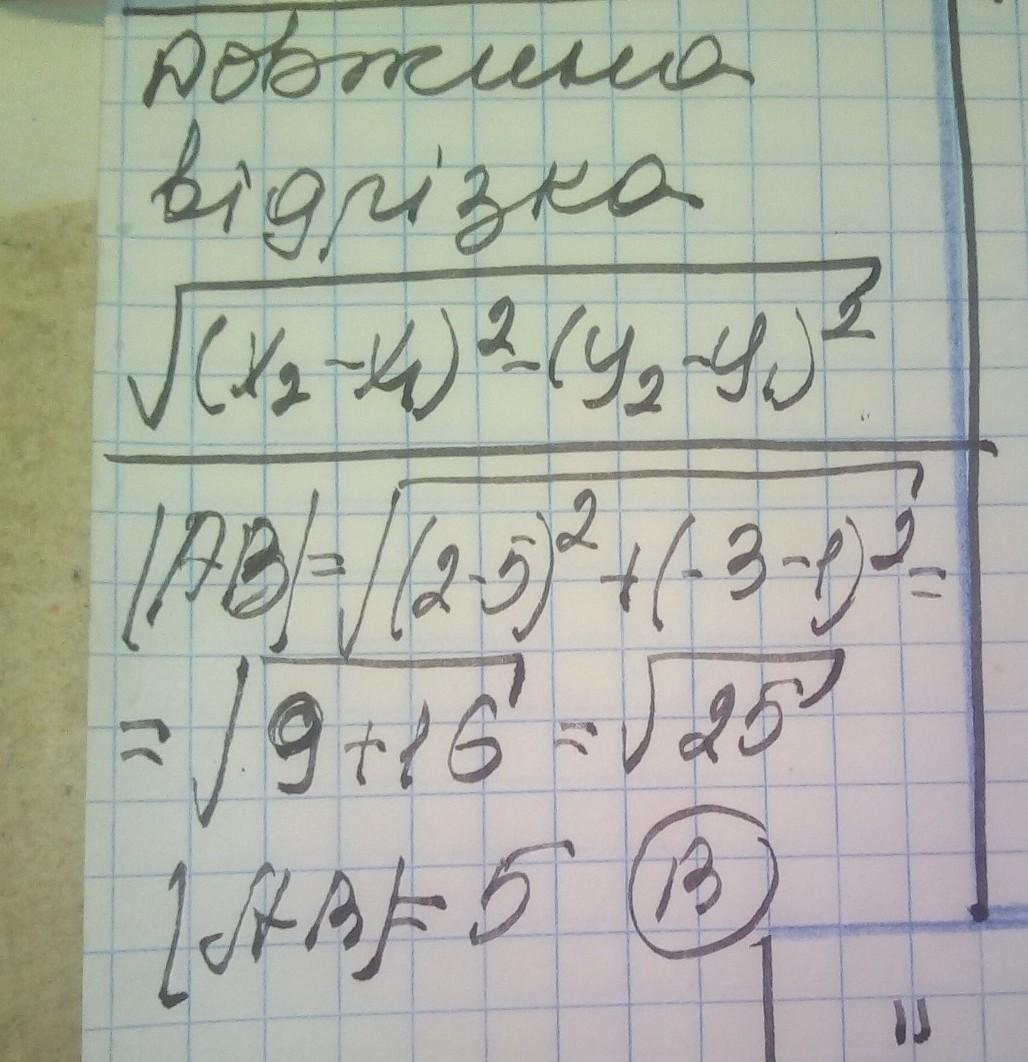 довжина
відрізка
√(x₂-x₁)²-(y₂-y₁)²
|AB|=√(2-5)²+(-3-1)²=
=√9+16=√25
|AB|=5 В
"